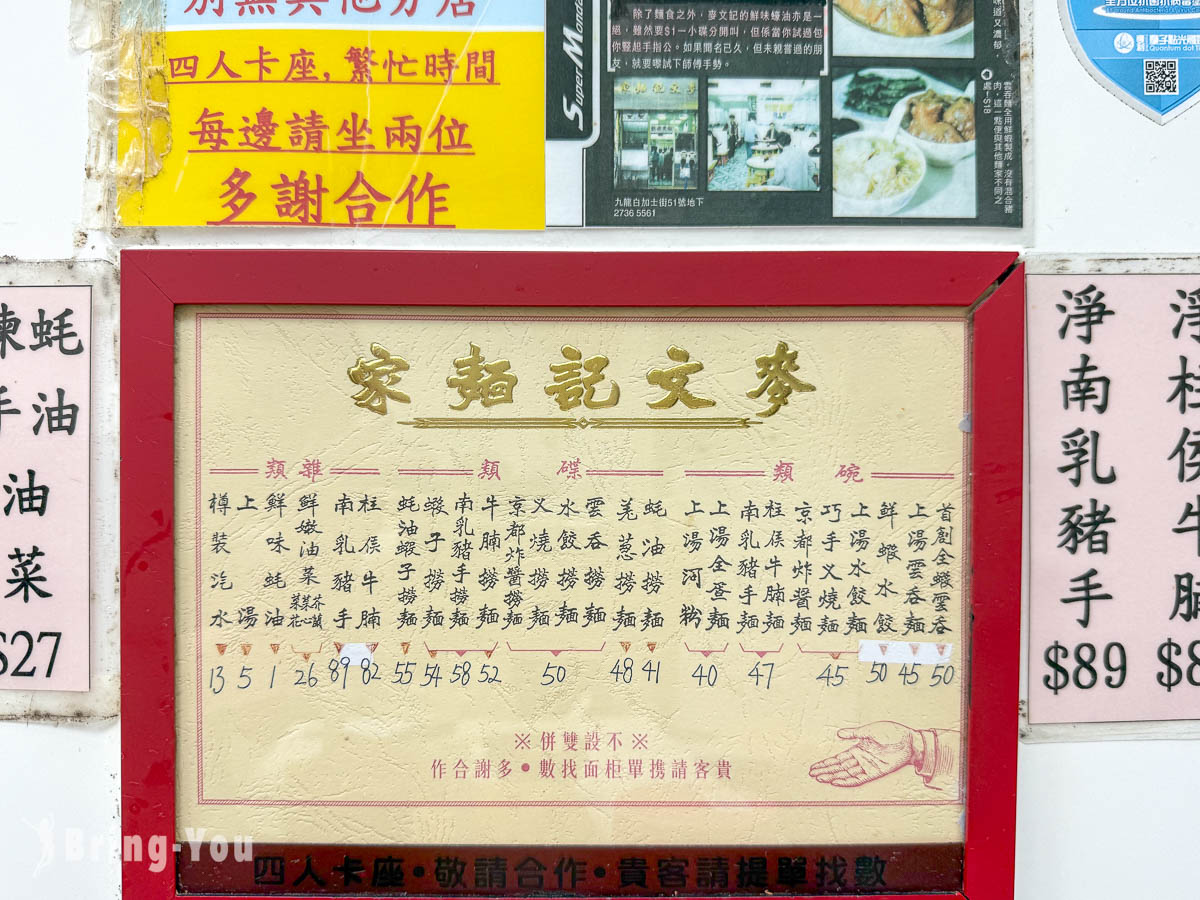 四人卡座, 繁忙時間
每邊請坐兩位
多謝合作
Super Monday
除了麵食之外，麥文記的鮮味蠔油亦是一
絕，雖然要$1一小碟分開叫，但係當你試過包
你豎起手指公。如果聞名已久，但未親嘗過的朋
友，就要嚟試下師傅手勢。
九龍白加士街51號地下
2736 5561
雲吞麵全用鮮蝦製成，沒有混合豬
肉，這一點便與其他麵家不同之
處！$18
味道又濃郁
Quantum dot
蚝油
手油
油
菜
$27
麥文記麵家
碗類
首創全蝦雲吞 50
上湯雲呑麵 45
鮮蝦水餃 50
上湯水餃麵
巧手叉燒麵
京都炸醬麵
45
柱侯牛腩麵
南乳豬手麵
47
上湯全蛋麵
上湯河粉
40
碟類
蚝油撈麵 41
羌葱撈麵 48
雲呑撈麵
水餃撈麵
叉燒撈麵
京都炸醬撈麵
50
牛腩撈麵 52
南乳豬手撈麵 58
蝦子撈麵 54
蚝油蝦子撈麵 55
雜類
柱侯牛腩 82
南乳豬手 89
鮮嫩油菜 芥菜菜蘭心花 26
鮮味蚝油 1
上湯 5
樽裝汽水 13
※不設雙併※
貴客請携單柜面找數●多謝合作
四人卡座·敬請合作·貴客請提單找數
淨南乳豬手
$89
淨桂侯牛腩
$8
Bring-You